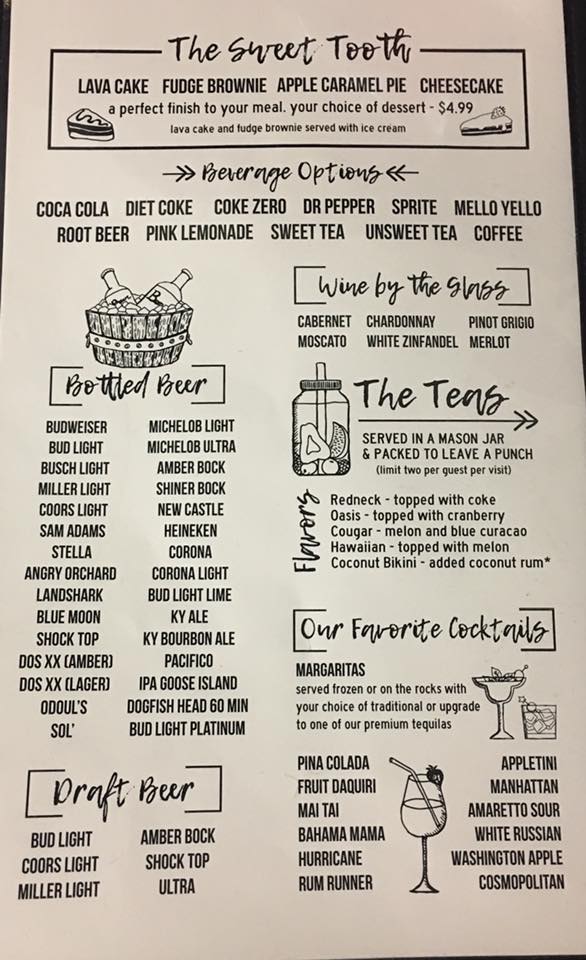 The Sweet Tooth
LAVA CAKE FUDGE BROWNIE APPLE CARAMEL PIE CHEESECAKE
a perfect finish to your meal. your choice of dessert - $4.99
lava cake and fudge brownie served with ice cream
Beverage Options
COCA COLA DIET COKE COKE ZERO DR PEPPER SPRITE MELLO YELLO
ROOT BEER PINK LEMONADE SWEET TEA UNSWEET TEA COFFEE
Bottled Beer
BUDWEISER MICHELOB LIGHT
BUD LIGHT MICHELOB ULTRA
BUSCH LIGHT AMBER BOCK
MILLER LIGHT SHINER BOCK
COORS LIGHT NEW CASTLE
SAM ADAMS HEINEKEN
STELLA CORONA
ANGRY ORCHARD CORONA LIGHT
LANDSHARK BUD LIGHT LIME
BLUE MOON KY ALE
SHOCK TOP KY BOURBON ALE
DOS XX (AMBER) PACIFICO
DOS XX (LAGER) IPA GOOSE ISLAND
ODOUL'S DOGFISH HEAD 60 MIN
SOL' BUD LIGHT PLATINUM
Draft Beer
BUD LIGHT AMBER BOCK
COORS LIGHT SHOCK TOP
MILLER LIGHT ULTRA
Wine by the Glass
CABERNET CHARDONNAY PINOT GRIGIO
MOSCATO WHITE ZINFANDEL MERLOT
The Teas
SERVED IN A MASON JAR
& PACKED TO LEAVE A PUNCH
(limit two per guest per visit)
Flavors
Redneck - topped with coke
Oasis - topped with cranberry
Cougar - melon and blue curacao
Hawaiian - topped with melon
Coconut Bikini - added coconut rum*
Our Favorite Cocktails
MARGARITAS
served frozen or on the rocks with
your choice of traditional or upgrade
to one of our premium tequilas
PINA COLADA APPLETINI
FRUIT DAQUIRI MANHATTAN
MAI TAI AMARETTO SOUR
BAHAMA MAMA WHITE RUSSIAN
HURRICANE WASHINGTON APPLE
RUM RUNNER COSMOPOLITAN